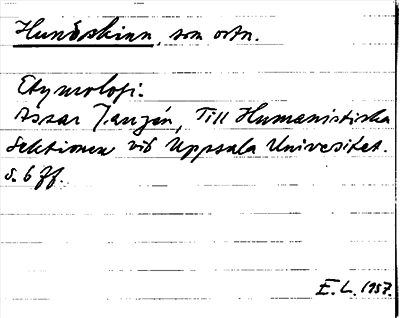 Hundskinn, som ortn.
Etymologi.
Assar Janzén, Till Humanistiska
Sektionen vid Uppsala Universitet.
s. 6 ff.
E. L. 1957.